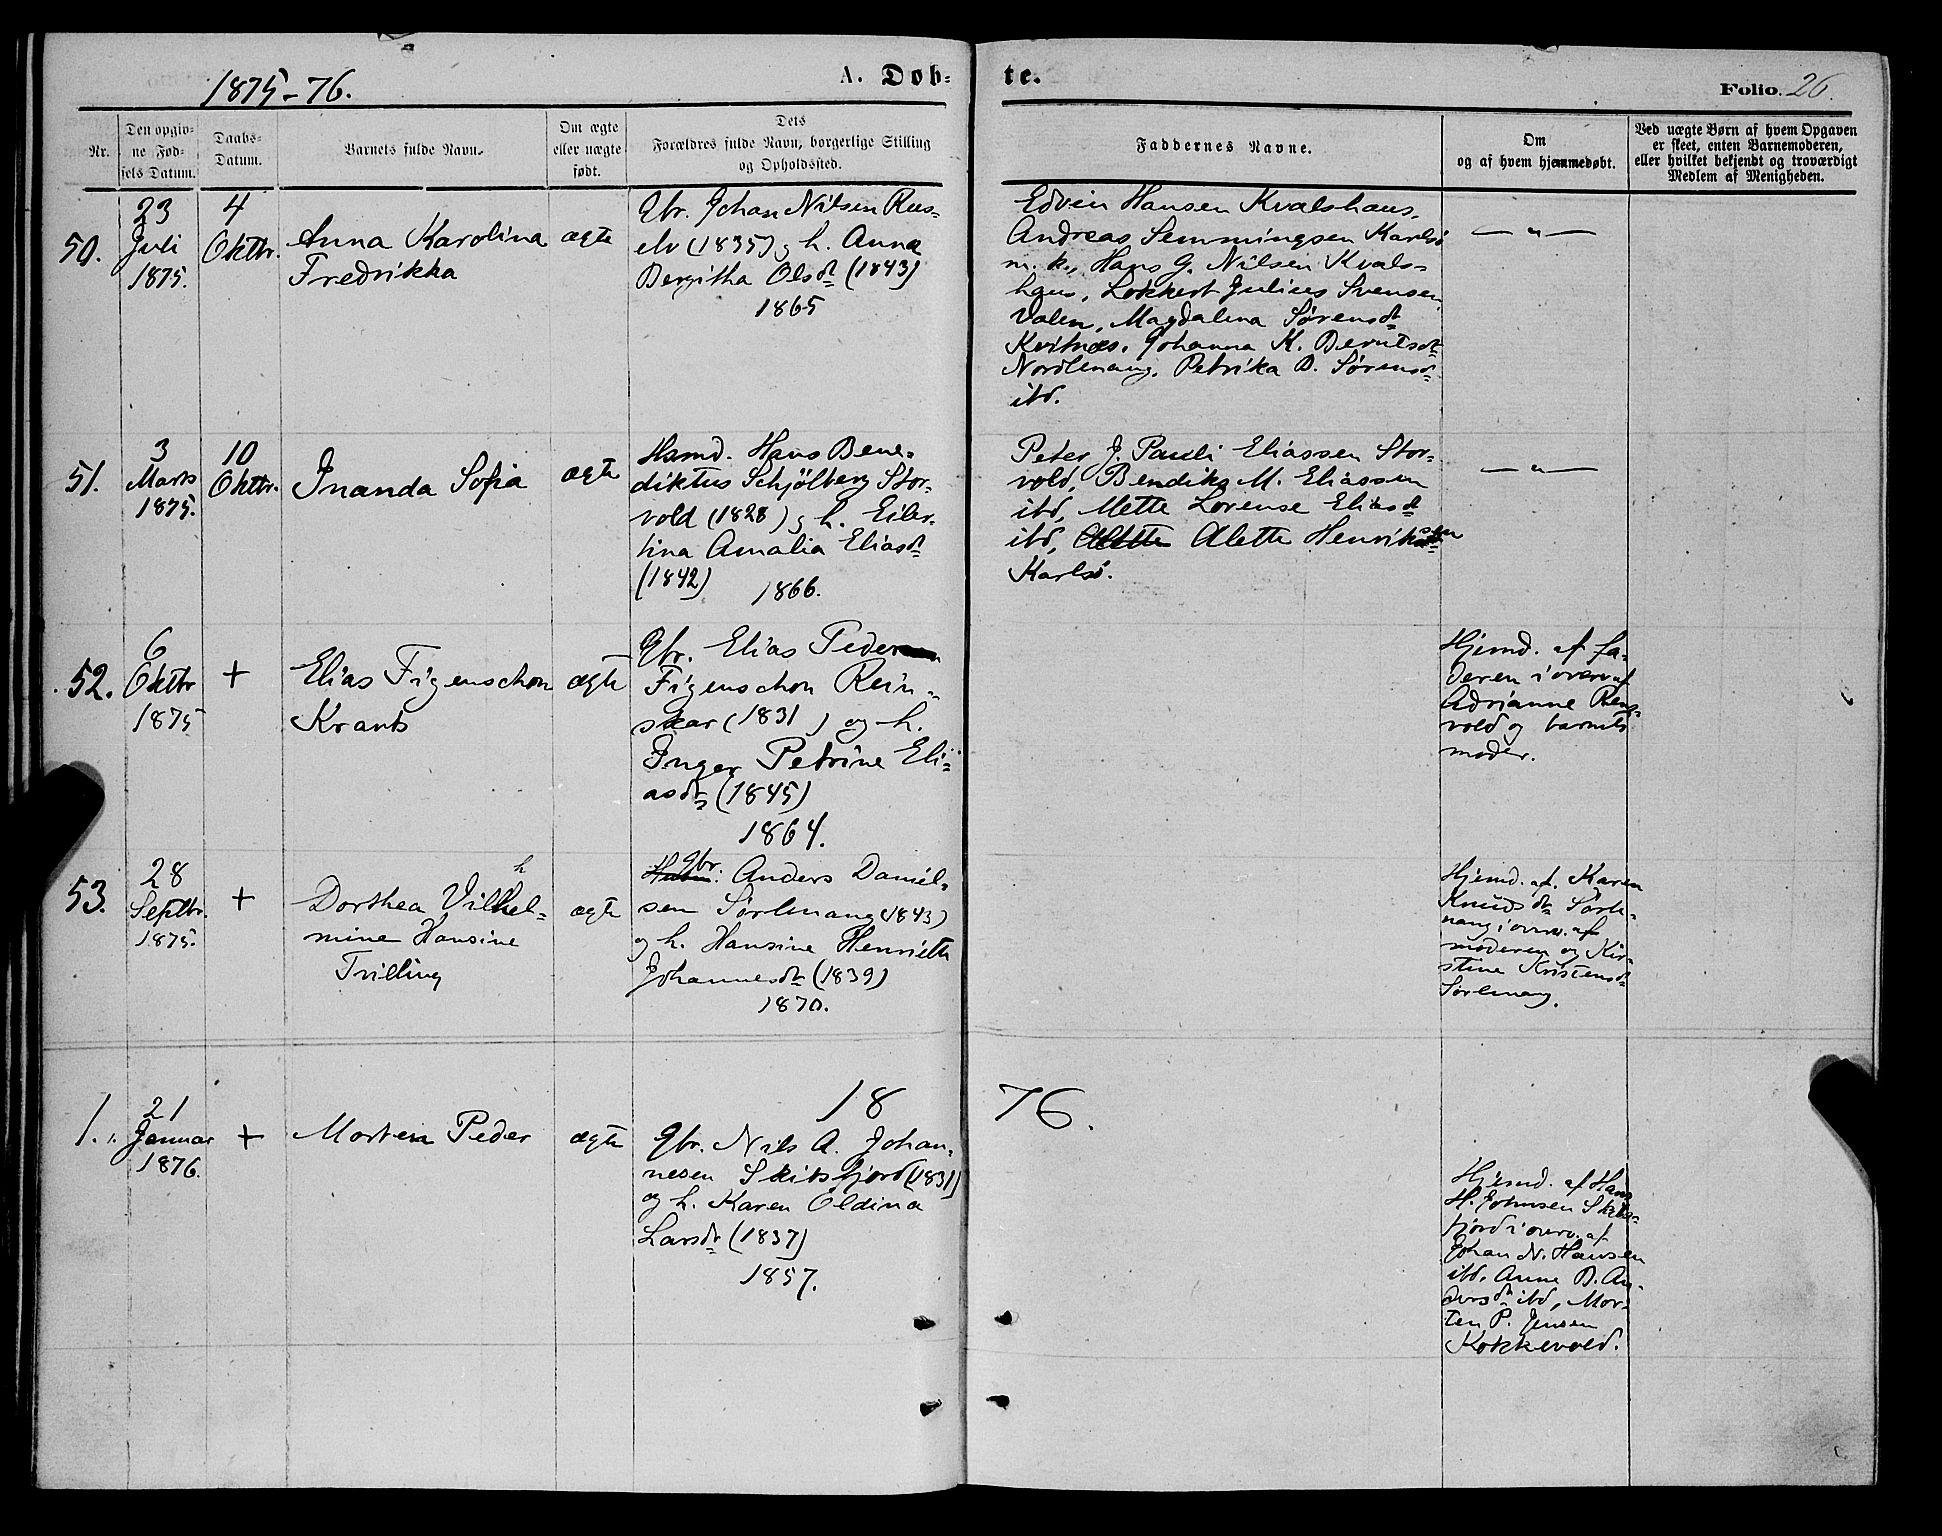 1875-76.
A. Døb-
te.
Folio. 26.
Nr.
Den opgiv-
ne Fød-
sels Datum.
Daabs-
Datum.
Barnets fulde Navn.
Om ægte
eller uægte
født.
Dets
Forældres fulde Navn, borgerlige Stilling
og Opholdssted.
Faddernes Navne.
Om
og af hvem hjemmedøbt.
Ved uægte Børn af hvem Opgaven
er skeet, enten Barnemoderen,
eller hvilket bekjendt og troværdigt
Medlem af Menigheden.
50.
23
Juli
1875.
4
Oktbr.
Anna Karolina
Fredrikka
ægte
Gbr. Johan Nilsen Rus-
elv (1835) og h. Anna
Bergitha Olsdt (1843)
1865
Edvin Hansen Kvalshaus,
Andreas Semmingsen Karlsö
m. k., Hans G. Nilsen Kvals-
haus, Lokkert Julius Svensen
Valen, Magdalena Sørensdt
Kvitnæs, Johanna K. Berntsdt
Nordlenang, Petrika B. Sørensdt
ibd.
— " —
51.
3
Marts
1875.
10
Oktbr.
Inanda Sofia
ægte
Hsmd. Hans Bene-
diktus Schjölberg Stor-
vold (1828) og h. Eiler-
tina Amalia Eliasdt
(1842)
1866.
Peter J. Pauli Eliassen Stor-
vold, Bendiks M. Eliassen
ibd, Mette Lorense Eliasdt
ibd, Alette Alette Henriksen
Karlsö.
— " —
52.
6
Oktbr
1875
+
Elias Figenschou
Krants
ægte
Gbr. Elias Peder
Figenschou Rein-
skar (1831) og h.
Inger Petrine Eli-
asdt (1845)
1864.
Hjemd. af fa-
deren i overv. af
Adrianne Reng-
vold og barnets
moder.
53.
28
Septbr.
1875.
+
Dorthea Vilhel-
mine Hansine
Trilling
ægte
Gbr. Anders Daniel-
sen Sörlenang (1843)
og h. Hansine Henriette
Johannesdt (1839)
1870.
Hjemd. af Karen
Knudsdt Sörle-
nang i overv. af
moderen og Kir-
stine Kristensdt
Sörlenang.
1876.
1.
21
Januar
1876.
+
Morten Peder
ægte
Gbr. Nils A. Johan-
nesen Skitsfjord (1831)
og h. Karen Oldina
Larsdt (1837)
1857.
Hjemd. af Hans
H. Johnsen Skits-
fjord i overv. af
Johan N. Hansen
ibd. Anne B. An-
dersdt ibd, Mor-
ten P. Jensen
Kokkevold.